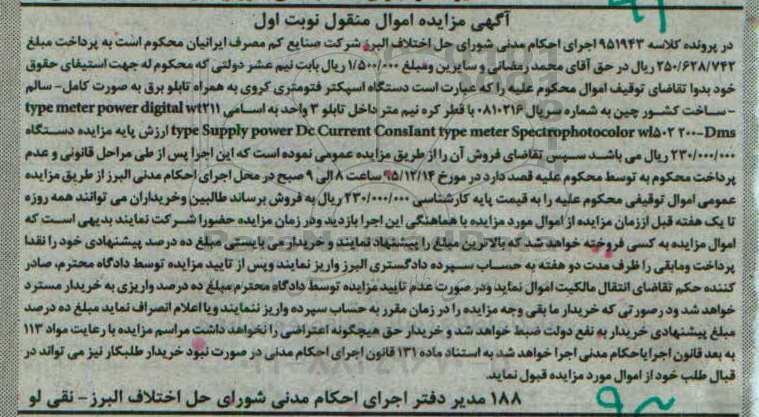 آگهی مزایده اموال منقول نوبت اول
در پرونده کلاسه ۹۵۱۹۴۳ اجرای احکام مدنی شورای حل اختلاف البرز شرکت صنایع کم مصرف ایرانیان محکوم است به پرداخت مبلغ
۲۵۰/۶۲۸/۷۴۲ ریال در حق آقای محمد رمضانی و سایرین ومبلغ ۱/۵۰۰/۰۰۰ ریال بابت نیم عشر دولتی که محکوم له جهت استیفای حقوق
خود بدوا تقاضای توقیف اموال محکوم علیه را که عبارت است دستگاه اسپکتر فتومتری کروی به همراه تابلو برق به صورت کامل- سالم
- ساخت کشور چین به شماره سریال ۰۸۱۰۲۱۶ با قطر کره نیم متر داخل تابلو ۳ واحد به اسامی type meter power digital wt۲۱۱
type Supply power Dc Current Conslant type meter Spectrophotocolor wl۵۰۲ ۲۰۰-Dms ارزش پایه مزایده دستگاه
۲۳۰/۰۰۰/۰۰۰ ریال می باشد سپس تقاضای فروش آن را از طریق مزایده عمومی نموده است که این اجرا پس از طی مراحل قانونی و عدم
پرداخت محکوم به توسط محکوم علیه قصد دارد در مورخ ۹۵/۱۲/۱۴ ساعت ۸ الی ۹ صبح در محل اجرای احکام مدنی البرز از طریق مزایده
عمومی اموال توقیفی محکوم علیه را به قیمت پایه کارشناسی ۲۳۰/۰۰۰/۰۰۰ ریال به فروش برساند طالبین وخریداران می توانند همه روزه
تا یک هفته قبل اززمان مزایده از اموال مورد مزایده با هماهنگی این اجرا بازدید ودر زمان مزایده حضورا شرکت نمایند بدیهی است که
اموال مزایده به کسی فروخته خواهد شد که بالاترین مبلغ را پیشنهاد نمایند و خریدار می بایستی مبلغ ده درصد پیشنهادی خود را نقدا
پرداخت ومابقی را ظرف مدت دو هفته به حساب سپرده دادگستری البرز واریز نمایند وپس از تایید مزایده توسط دادگاه محترم، صادر
کننده حکم تقاضای انتقال مالکیت اموال نماید ودر صورت عدم تایید مزایده توسط دادگاه محترم مبلغ ده درصد واریزی به خریدار مسترد
خواهد شد ود رصورتی که خریدار ما بقی وجه مزایده را در زمان مقرر به حساب سپرده واریز ننمایند ویا اعلام انصراف نماید مبلغ ده درصد
مبلغ پیشنهادی خریدار به نفع دولت ضبط خواهد شد و خریدار حق هیچگونه اعتراضی را نخواهد داشت مراسم مزایده با رعایت مواد ۱۱۳
به بعد قانون اجرایاحکام مدنی اجرا خواهد شد به استناد ماده ۱۳۱ قانون اجرای احکام مدنی در صورت نبود خریدار طلبکار نیز می تواند در
قبال طلب خود از اموال مورد مزایده قبول نماید.
۱۸۸ مدیر دفتر اجرای احکام مدنی شورای حل اختلاف البرز- نقی لو